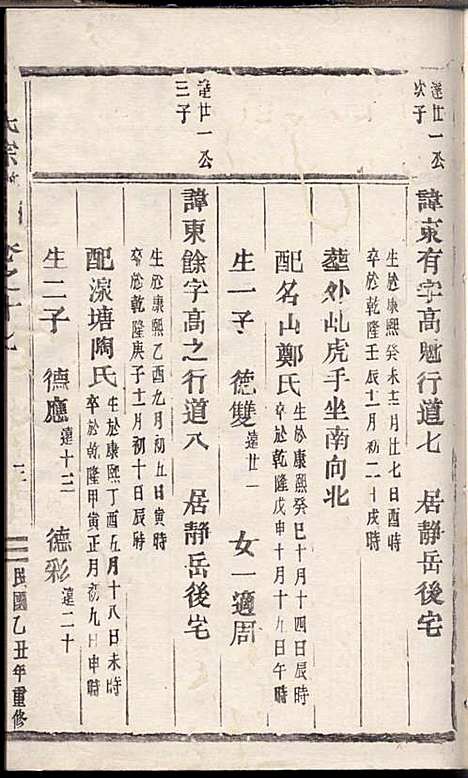 達廿一公
次子
諱東有字高魁行道七 居靜岳後宅
生於康熙癸未十二月廿七日酉時
卒於乾隆壬辰十一月初二日戌時
塟外乢虎手坐南向北
配名山鄭氏
生於康熙癸巳十月十四日辰時
卒於乾隆戊申十月十九日午時
生一子 德雙 遠廿一 女一適周
達廿一公
三子
諱東餘字高之行道八 居靜岳後宅
生於康熙乙酉九月初五日寅時
卒於乾隆庚子十二月初十日辰時
配滾塘陶氏
生於康熙丁酉五月十八日未時
卒於乾隆甲寅正月初九日申時
生二子 德應 遠十三 德彩 遠二十
氏宗 卷之十七
民國乙丑年重修